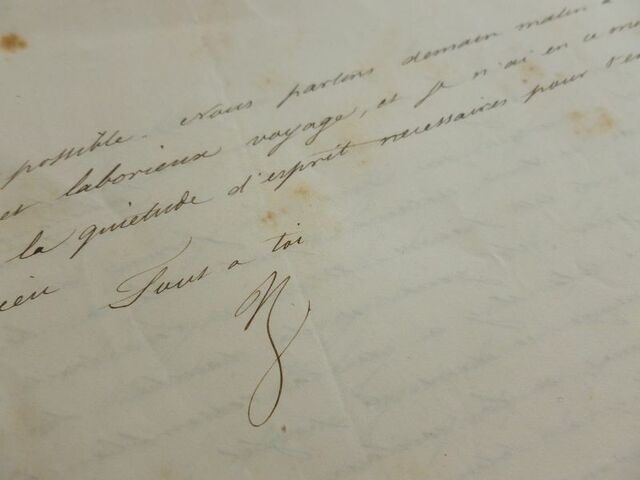 possible. Nous partons demain matin
et laborieux voyage, et je n'ai en ce mo
la quietude d'esprit nécessaires pour t'en
ieu Tout a toi
N